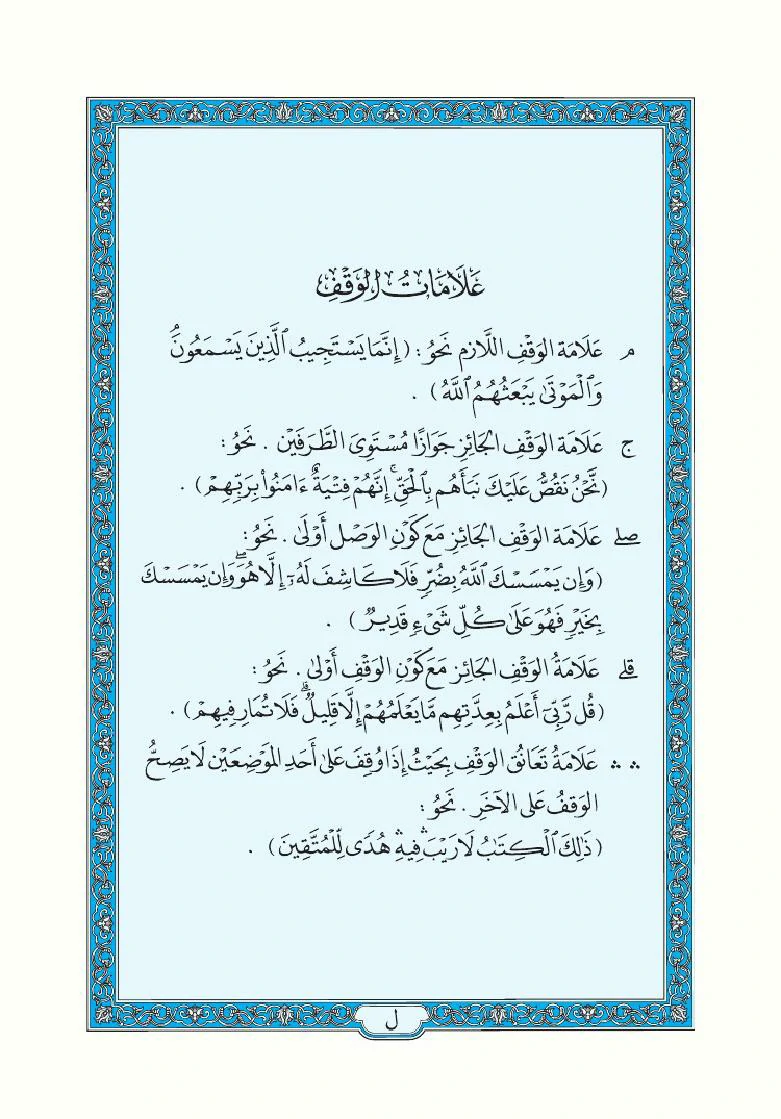 عَلَامَاتُ الوَقْفِ
مـ عَلَامَة الوَقْفِ اللَّازم نَحْوُ : ( إِنَّمَا يَسْتَجِيبُ ٱلَّذِينَ يَسْمَعُونَۘ
وَٱلْمَوْتَىٰ يَبْعَثُهُمُ ٱللَّهُ ) .
ج عَلَامَة الوَقْفِ الجَائِزِ جَوَازًا مُسْتَوِيَ الطَّرَفَيْن . نَحْوُ :
( نَّحْنُ نَقُصُّ عَلَيْكَ نَبَأَهُم بِٱلْحَقِّۚ إِنَّهُمْ فِتْيَةٌ ءَامَنُوا۟ بِرَبِّهِمْ ) .
صلے عَلَامَة الوَقْفِ الجَائِز مَعَ كَوْنِ الوَصْل أَوْلَىٰ . نَحْوُ :
( وَإِن يَمْسَسْكَ ٱللَّهُ بِضُرٍّ فَلَا كَاشِفَ لَهُۥٓ إِلَّا هُوَۖ وَإِن يَمْسَسْكَ
بِخَيْرٍ فَهُوَ عَلَىٰ كُلِّ شَىْءٍ قَدِيرٌ ) .
قلے عَلَامَةُ الوَقْفِ الجَائِز مَعَ كَوْنِ الوَقْفِ أَوْلَىٰ . نَحْوُ :
( قُل رَّبِّىٓ أَعْلَمُ بِعِدَّتِهِم مَّا يَعْلَمُهُمْ إِلَّا قَلِيلٌۗ فَلَا تُمَارِ فِيهِمْ ) .
∴ ∴ عَلَامَةُ تَعَانُق الوَقْفِ بِحَيْثُ إِذَا وُقِفَ عَلَىٰ أَحَدِ المَوْضِعَيْن لَا يَصِحُّ
الوَقفُ عَلَى الآخَرِ . نَحْوُ :
( ذَٰلِكَ ٱلْكِتَٰبُ لَا رَيْبَۛ فِيهِۛ هُدًى لِّلْمُتَّقِينَ ) .
ل